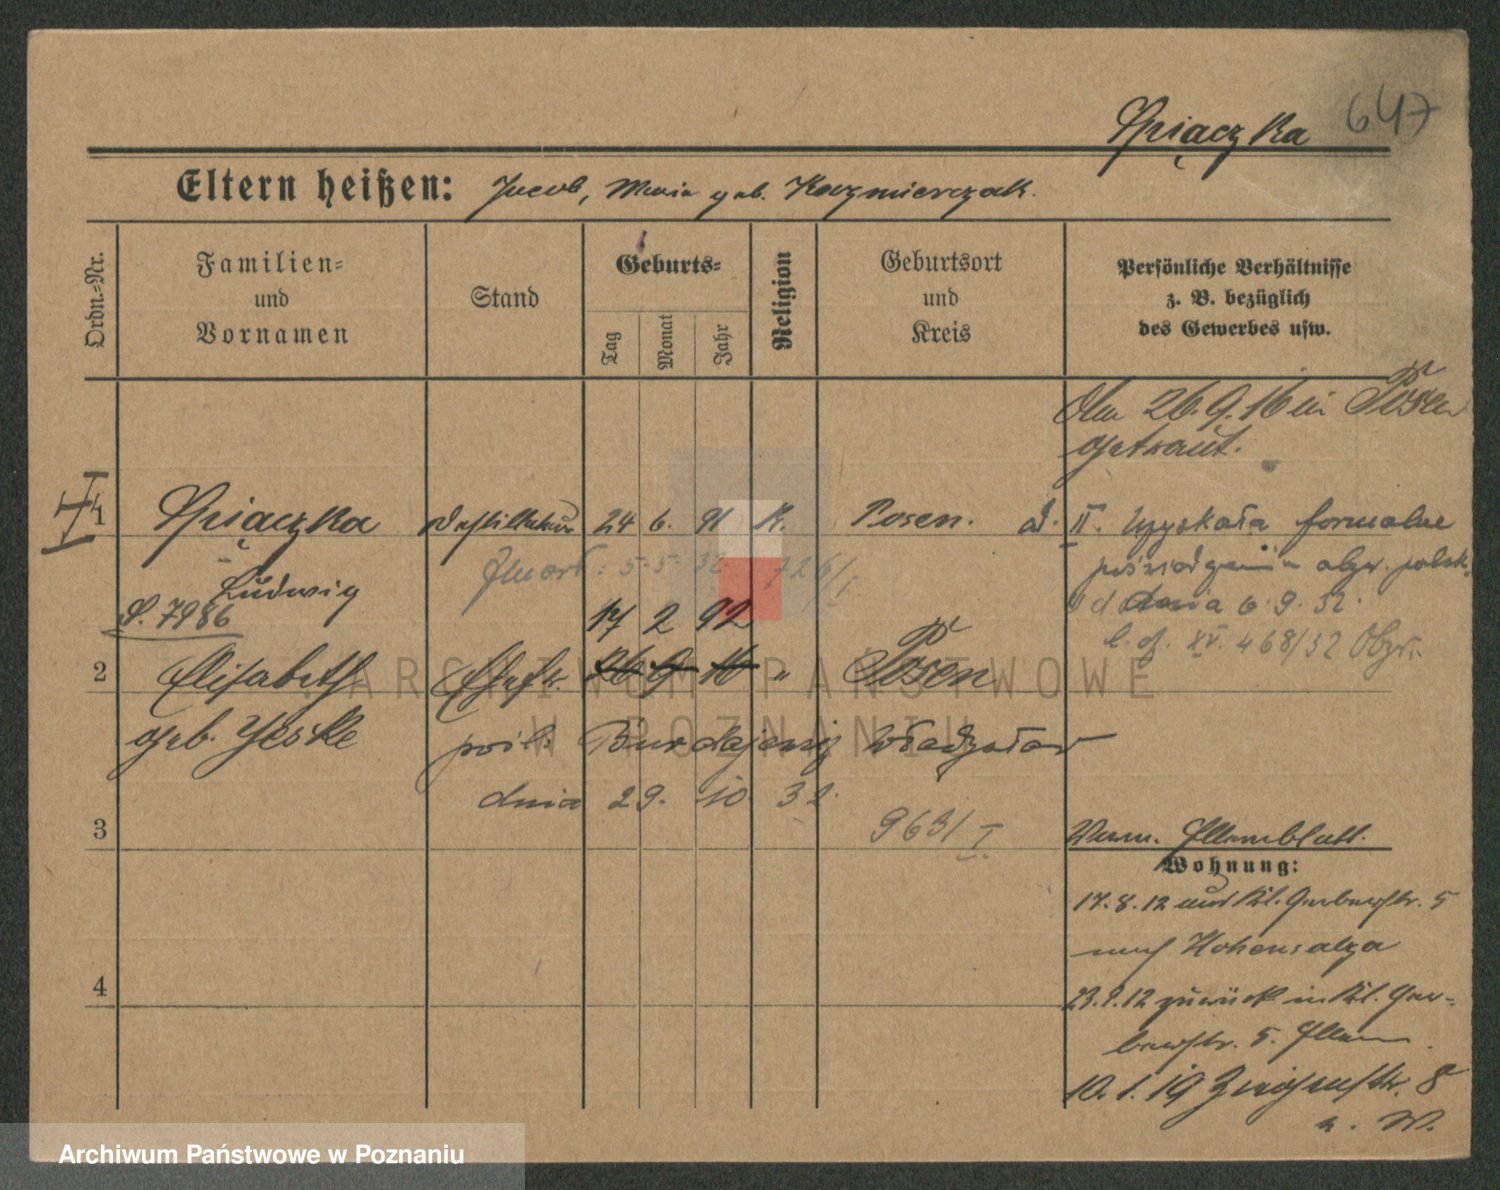 Śpiączka 647
Eltern heißen: Jacob, Maria geb. Kazmierczak.
Ordn.-Nr.
Familien-
und
Vornamen
Stand
Geburts-
Tag
Monat
Jahr
Religion
Geburtsort
und
Kreis
Persönliche Verhältnisse
z. B. bezüglich
des Gewerbes usw.
26.9.16 in Posen
getraut.
1 Śpiączka Destillateur 24 6. 91 K. Posen.
Ludwig
zmarł: 5.5.32 726/I
II. Uzyskała formalne
poświadczenie obyw. polsk.
dnia 6.9.32.
XV. 468/32 Obyw.
S. 7986
17 2 92
2 Elisabeth Ehefr. 26 9 16 " Posen
geb. Jeske
pośl. Władysław
dnia 29. 10 32.
963/I
3
Verm. Elternblatt.
Wohnung:
17.8.12 Kl. Gerberstr. 5
nach Hohensalza
23.9.12 zurück in Kl. Ger-
berstr. 5. Eltern
10.1.19 8
n. W.
4
ARCHIWUM PAŃSTWOWE
W POZNANIU
Archiwum Państwowe w Poznaniu